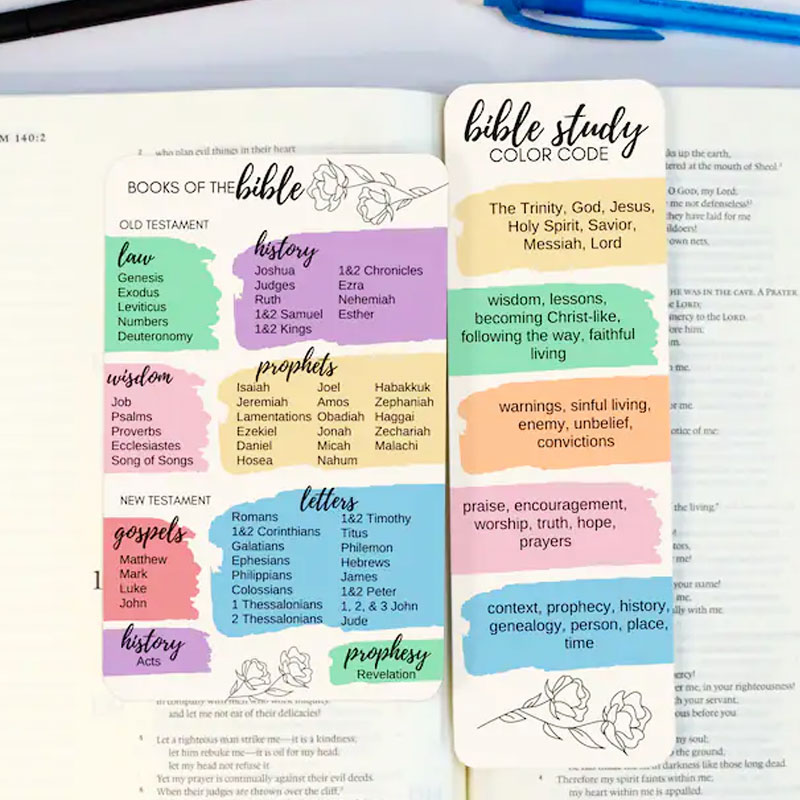 M 140:2
2 who plan evil things in their heart
BOOKS OF THE bible
OLD TESTAMENT
law
Genesis
Exodus
Leviticus
Numbers
Deuteronomy
history
Joshua
Judges
Ruth
1&2 Samuel
1&2 Kings
1&2 Chronicles
Ezra
Nehemiah
Esther
wisdom
Job
Psalms
Proverbs
Ecclesiastes
Song of Songs
prophets
Isaiah
Jeremiah
Lamentations
Ezekiel
Daniel
Hosea
Joel
Amos
Obadiah
Jonah
Micah
Nahum
Habakkuk
Zephaniah
Haggai
Zechariah
Malachi
NEW TESTAMENT
gospels
Matthew
Mark
Luke
John
letters
Romans
1&2 Corinthians
Galatians
Ephesians
Philippians
Colossians
1 Thessalonians
2 Thessalonians
1&2 Timothy
Titus
Philemon
Hebrews
James
1&2 Peter
1, 2, & 3 John
Jude
history
Acts
prophesy
Revelation
in company with men who work iniquity,
and let me not eat of their delicacies!
5 Let a righteous man strike me—it is a kindness;
let him rebuke me—it is oil for my head;
let my head not refuse it.
Yet my prayer is continually against their evil deeds.
6 When their judges are thrown over the cliff,
bible study
COLOR CODE
The Trinity, God, Jesus,
Holy Spirit, Savior,
Messiah, Lord
wisdom, lessons,
becoming Christ-like,
following the way, faithful
living
warnings, sinful living,
enemy, unbelief,
convictions
praise, encouragement,
worship, truth, hope,
prayers
context, prophecy, history,
genealogy, person, place,
time
ks up the earth,
at the mouth of Sheol.
O God, my Lord;
me not defenseless!
they have laid for me
own nets,
HE WAS IN THE CAVE. A PRAYER.
LORD;
mercy to the LORD.
him;
me.
notice of me;
the living."
me,
your name!
me,
with me.
me, in your righteousness!
your servant,
before you.
my soul;
the ground;
darkness like those long dead.
4 Therefore my spirit faints within me;
my heart within me is appalled.